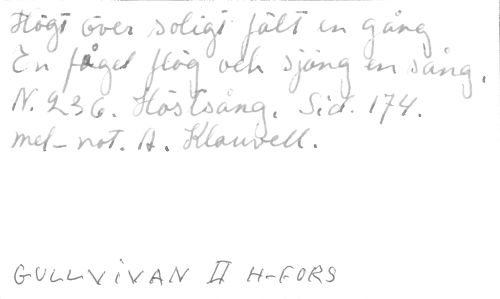 Högt över soligt fält en gång
En fågel flög och sjöng en sång.
N. 236. Höstsång. Sid. 174.
mel-not. A. Klauvell.
GULLVIVAN II H-FORS